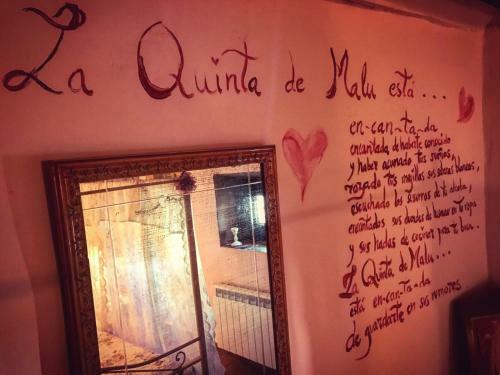 La Quinta de Malu está...
en-can-ta-da
encantada de haberte conocido
y haber acunado tus sueños,
rozado tus mejillas sus sábanas blancas,
escuchado los susurros de tu alcoba,
encantados sus duendes de  en tu ropa
y sus hadas de cocinar para ti bien.
La Quinta de Malu...
está en-can-ta-da
de guardarte en sus rumores.